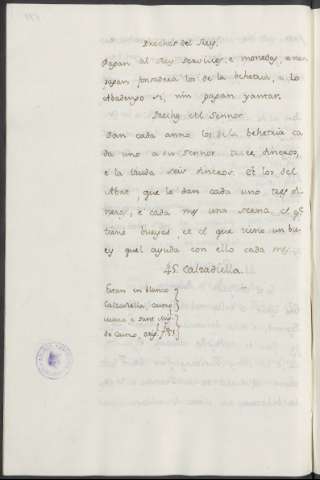 Drechos del Rey.
Pagan al Rey servicios, e monedas, e non
pagan fonsadera los de la behetria, e lo
Abadengo si, nin pagan yantar.
Drechos del Sennor
Dan cada anno los de la behetria ca
da uno a su sennor doce dineros,
e la viuda seis dineros. Et los del
Abat, que le dan cada uno tres di
neros, e cada mes una serna, el q.e
tiene bueyes, et el que tiene un bu
ey quel ayuda con ello cada mes.
Calzadiella
Estan en blanco
Calzadiella,
de Cueza,